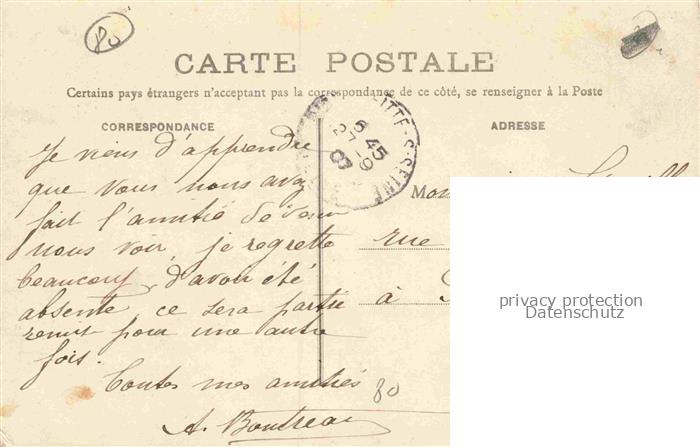 80
CARTE POSTALE
Certains pays étrangers n'acceptent pas la correspondance de ce côté, se renseigner à la Poste
CORRESPONDANCE
ADRESSE
ITTE-S-SEINE
5 45
27-9
07
Je viens d'apprendre
que vous nous avez
fait l'amitié de venir
nous voir, je regrette
beaucoup d'avoir été
absente ce sera partie
remise pour une autre
fois.
Toutes mes amitiés
A. Boutreau
Mon
rue
à
80
privacy protection
Datenschutz